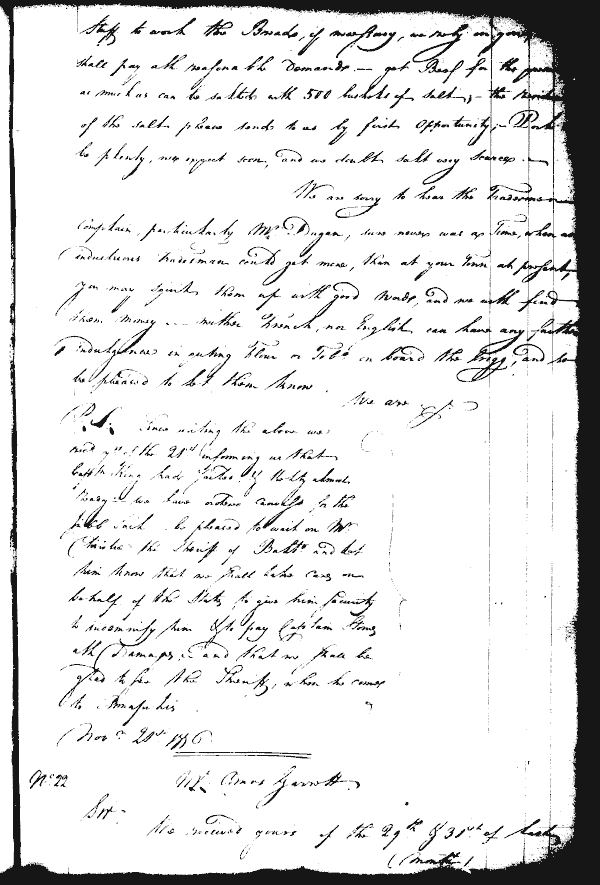 Staff to work the Bread, if necessary, we rely on your
shall pay all reasonable Demands — get Beef for the
as much as can be salted with 500 bushels of salt, — the
of the salt please send to us by first Opportunity; — Pork
be plenty, we expect soon, and we doubt salt very scarce —
We are sorry to hear the Tradesmen
complain, particularly Mr. Dugan, sure never was a Time, when an
industrious Tradesman could get more, than at your Town at present,
you may spirit them up with good words, and we will find
them money — neither French, nor English can have any further
indulgence in putting Flour or Tobo. on board the Brigg, and so
be pleased to let them know.
We are &c.
P.S. Since writing the above we
recd. yrs. of the 20th informing us that
Captn. King had
ready — we have ordered canvas for the
be pleased to wait on Mr.
Christie the Sheriff of Balto. and let
him know that we shall take care on
behalf of the State to give him security
to indemnify him & to pay Captain Stone
all Damages, — and that we shall be
glad to see the Sheriff, when he comes
to Annapolis
Novr. 20th 1776
No. 22
Mr. Amos Garrett
Sir
We received yours of the 29th & 31st of last
Month